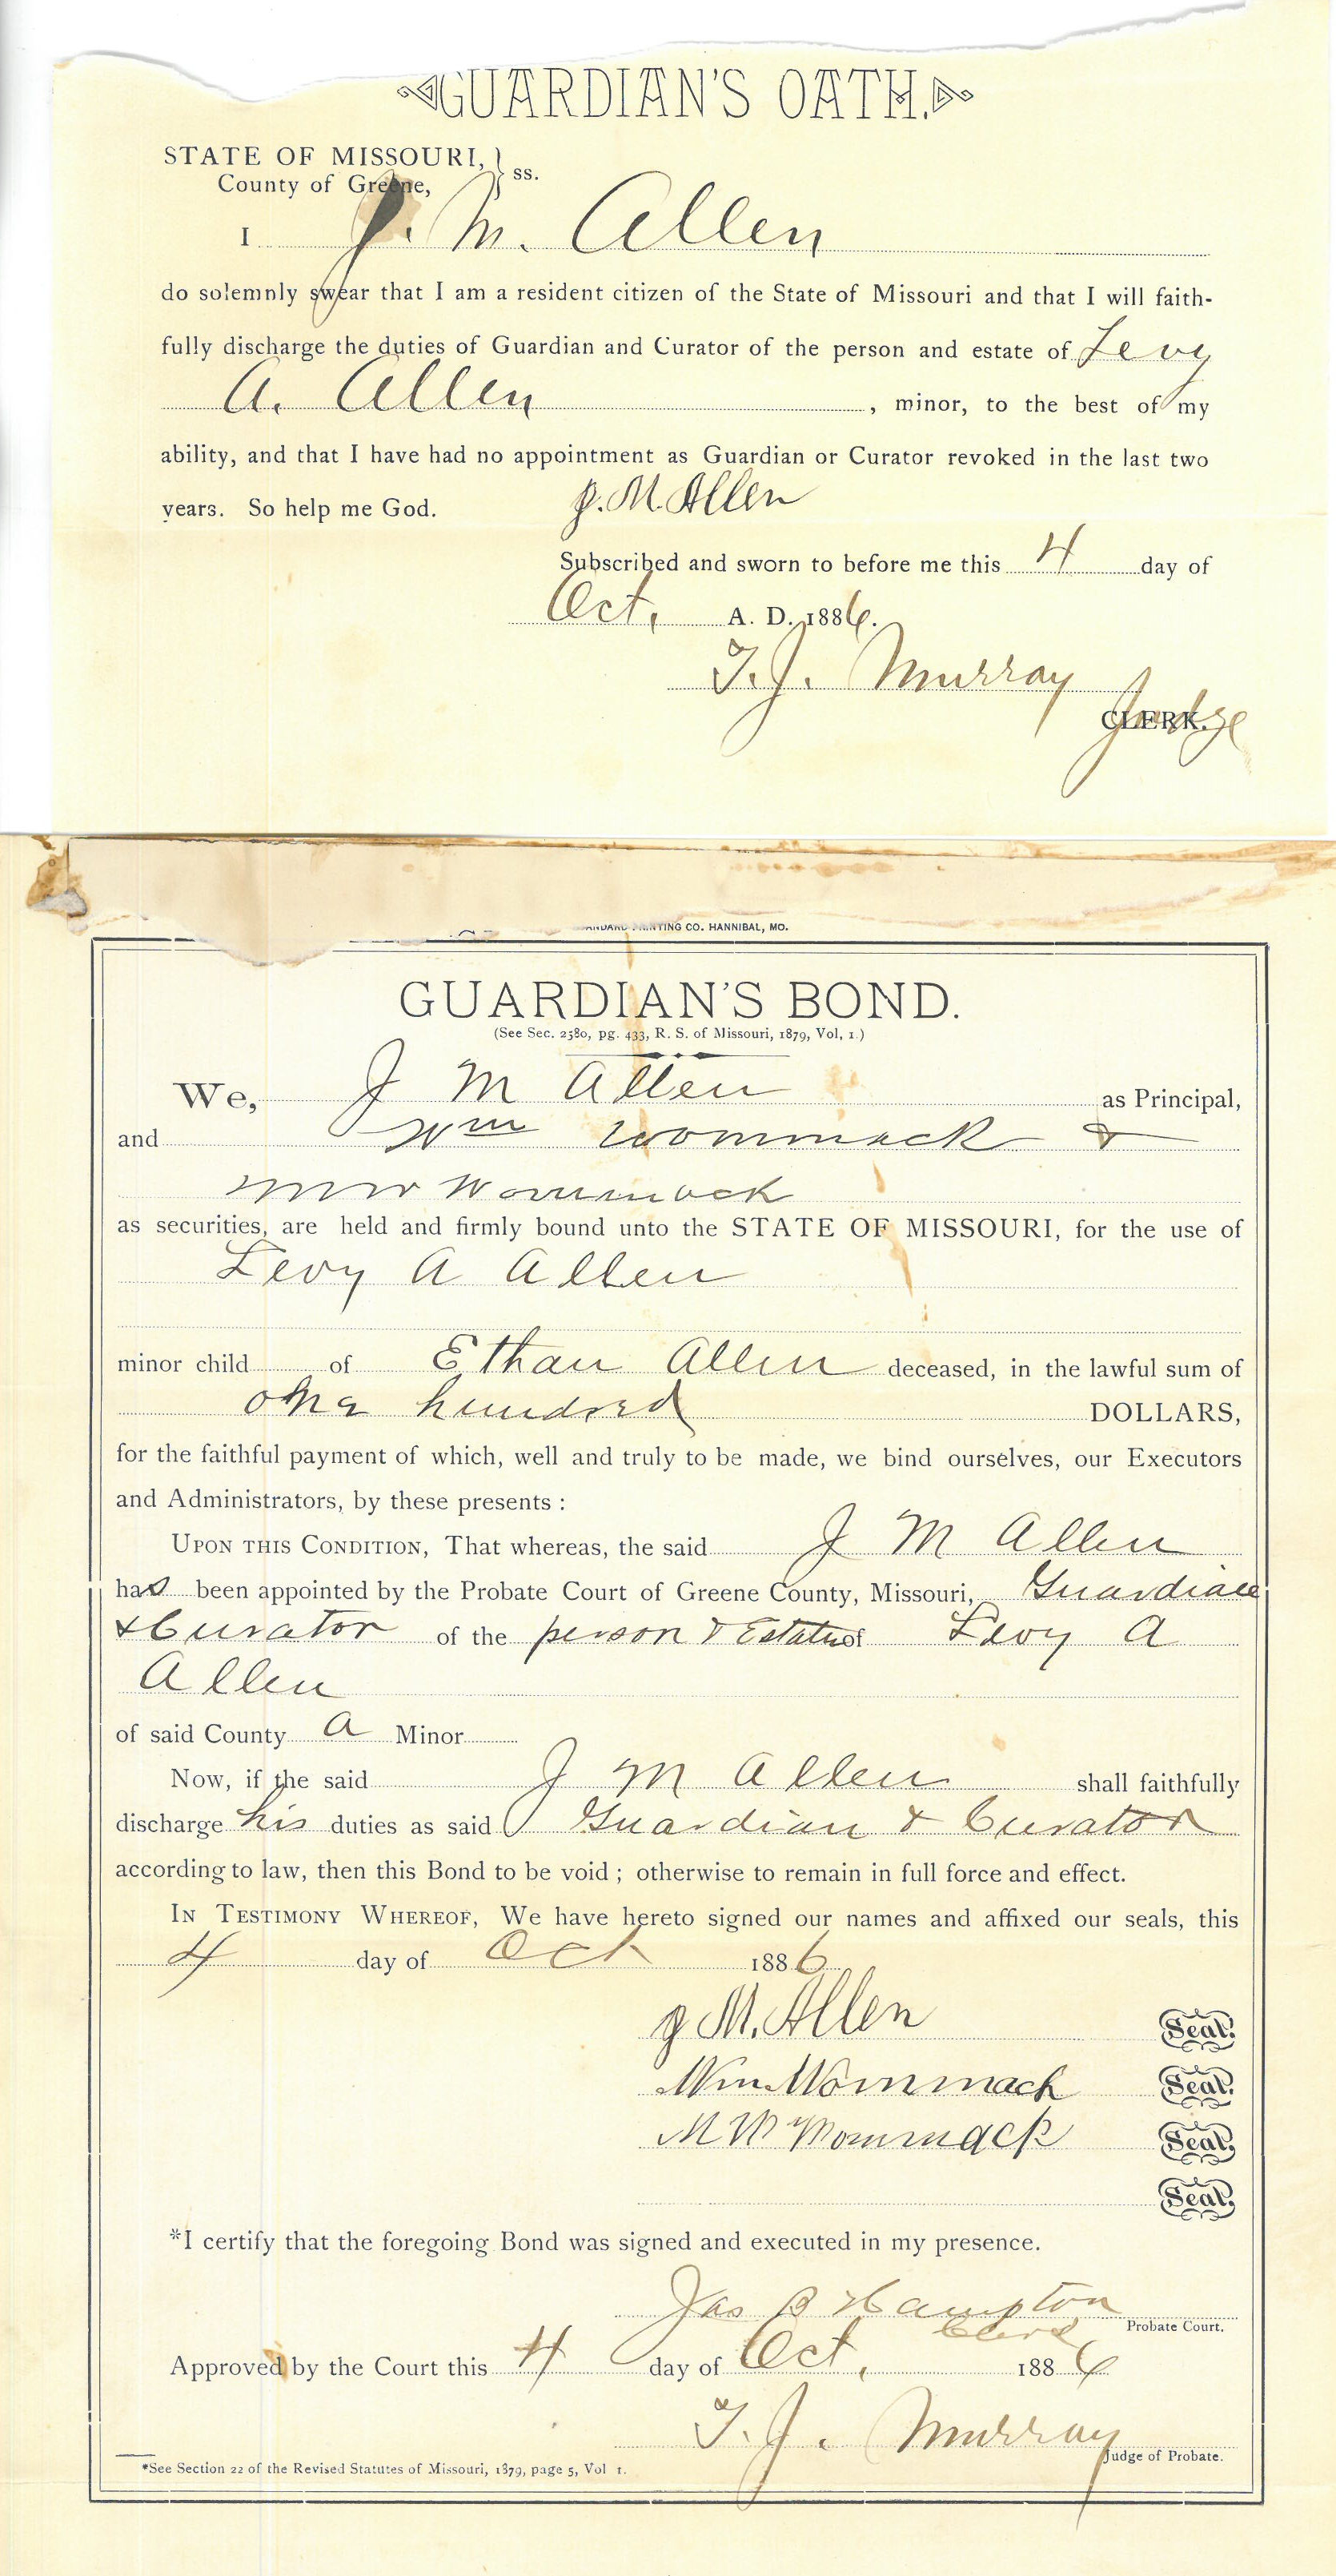 GUARDIAN'S OATH.
STATE OF MISSOURI, } ss.
County of Greene,
I J. M. Allen
do solemnly swear that I am a resident citizen of the State of Missouri and that I will faith-
fully discharge the duties of Guardian and Curator of the person and estate of Levy
A. Allen, minor, to the best of my
ability, and that I have had no appointment as Guardian or Curator revoked in the last two
years. So help me God. J. M. Allen
Subscribed and sworn to before me this 4 day of
Oct, A. D. 1886.
T. J. Murray
CLERK. Judge
PRINTING CO. HANNIBAL, MO.
GUARDIAN'S BOND.
(See Sec. 2580, pg. 433, R. S. of Missouri, 1879, Vol, 1.)
We, J M Allen as Principal,
and Wm Wommack &
M W Wommack
as securities, are held and firmly bound unto the STATE OF MISSOURI, for the use of
Levy A Allen
minor child of Ethan Allen deceased, in the lawful sum of
one hundred DOLLARS,
for the faithful payment of which, well and truly to be made, we bind ourselves, our Executors
and Administrators, by these presents :
UPON THIS CONDITION, That whereas, the said J M Allen
has been appointed by the Probate Court of Greene County, Missouri, Guardian
& Curator of the person & Estate of Levy A
Allen
of said County a Minor
Now, if the said J M Allen shall faithfully
discharge his duties as said Guardian & Curator
according to law, then this Bond to be void ; otherwise to remain in full force and effect.
IN TESTIMONY WHEREOF, We have hereto signed our names and affixed our seals, this
4 day of Oct 1886
J M. Allen Seal.
Wm Wommack Seal.
M W Wommack Seal.
Seal.
*I certify that the foregoing Bond was signed and executed in my presence.
Jas B Hampton
Clerk Probate Court.
Approved by the Court this 4 day of Oct, 1886
T. J. Murray
Judge of Probate.
*See Section 22 of the Revised Statutes of Missouri, 1879, page 5, Vol 1.